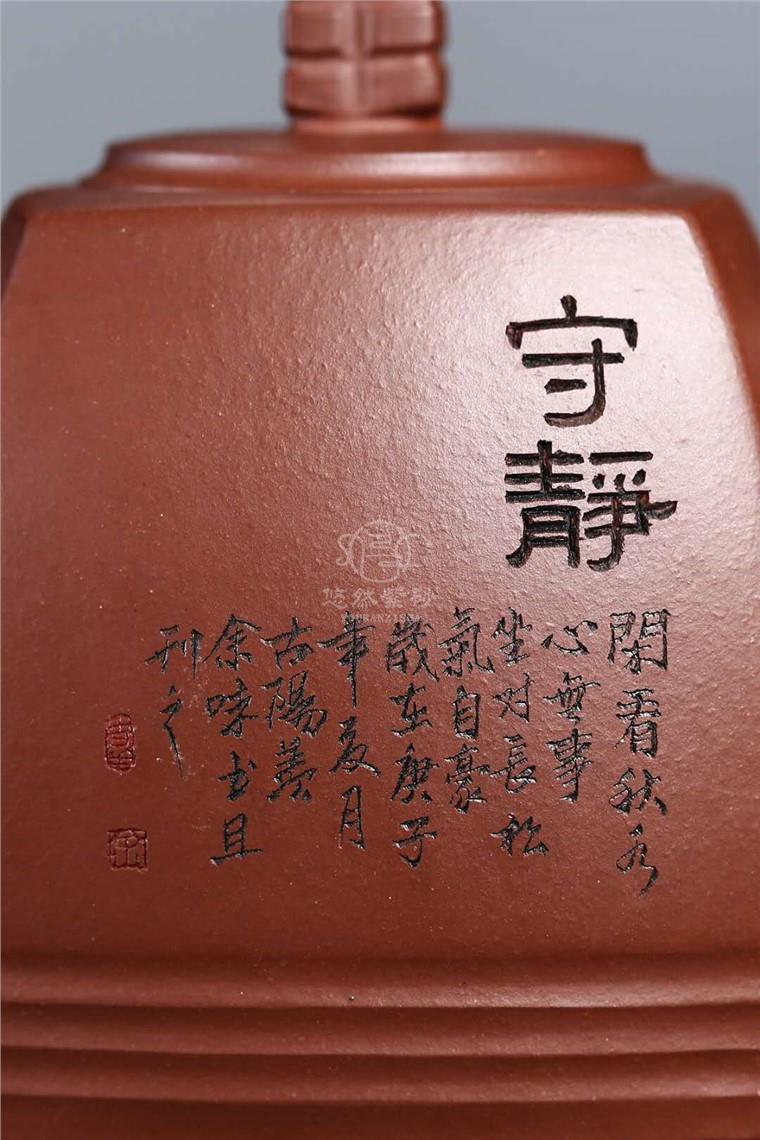 守靜
閑看秋水
心無事
坐對長松
氣自豪
歲在庚子
年夏月
古陽羨
余味书且
刊之
悠然紫砂